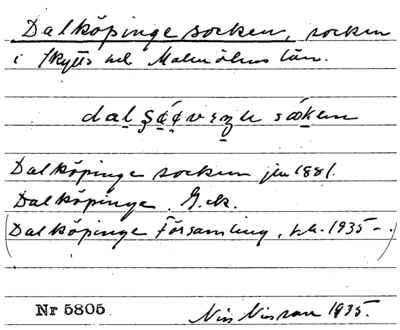 Dalköpinge socken, socken
i Skytts hd Malmöhus län.
socken
Dalköpinge socken jbu 1881.
Dalköpinge G.ek.
(Dalköpinge Församling, 1935-.)
Nr 5805. Nils Nilsson 1935.